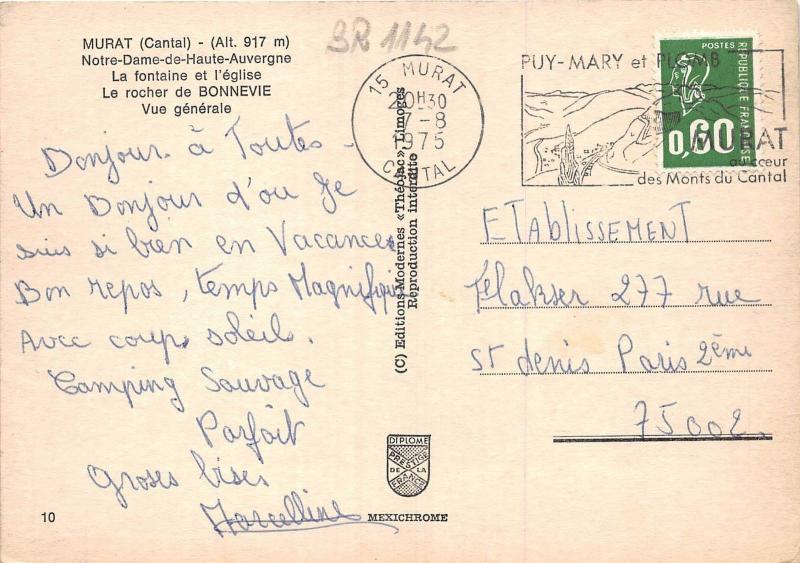 MURAT (Cantal) - (Alt. 917 m)
Notre-Dame-de-Haute-Auvergne
La fontaine et l'église
Le rocher de BONNEVIE
Vue générale
BR 1142
15 MURAT
20H30
7-8
1975
CANTAL
PUY-MARY et PLOMB
MURAT
au cœur
des Monts du Cantal
POSTES
REPUBLIQUE FRANÇAISE
0,60
Bonjour à Toutes -
Un Bonjour d'ou Je
suis si bien en Vacances
Bon repos, temps Magnifique
Avec coup soleil.
Camping Sauvage
Parfait
Groses bises
Marcelline
(C) Editions Modernes «Théojac», Limoges
Reproduction interdite
ETablissement
277 rue
St denis Paris 2ème
75002.
DIPLOME
PRESTIGE
DE LA
FRANCE
10
MEXICHROME